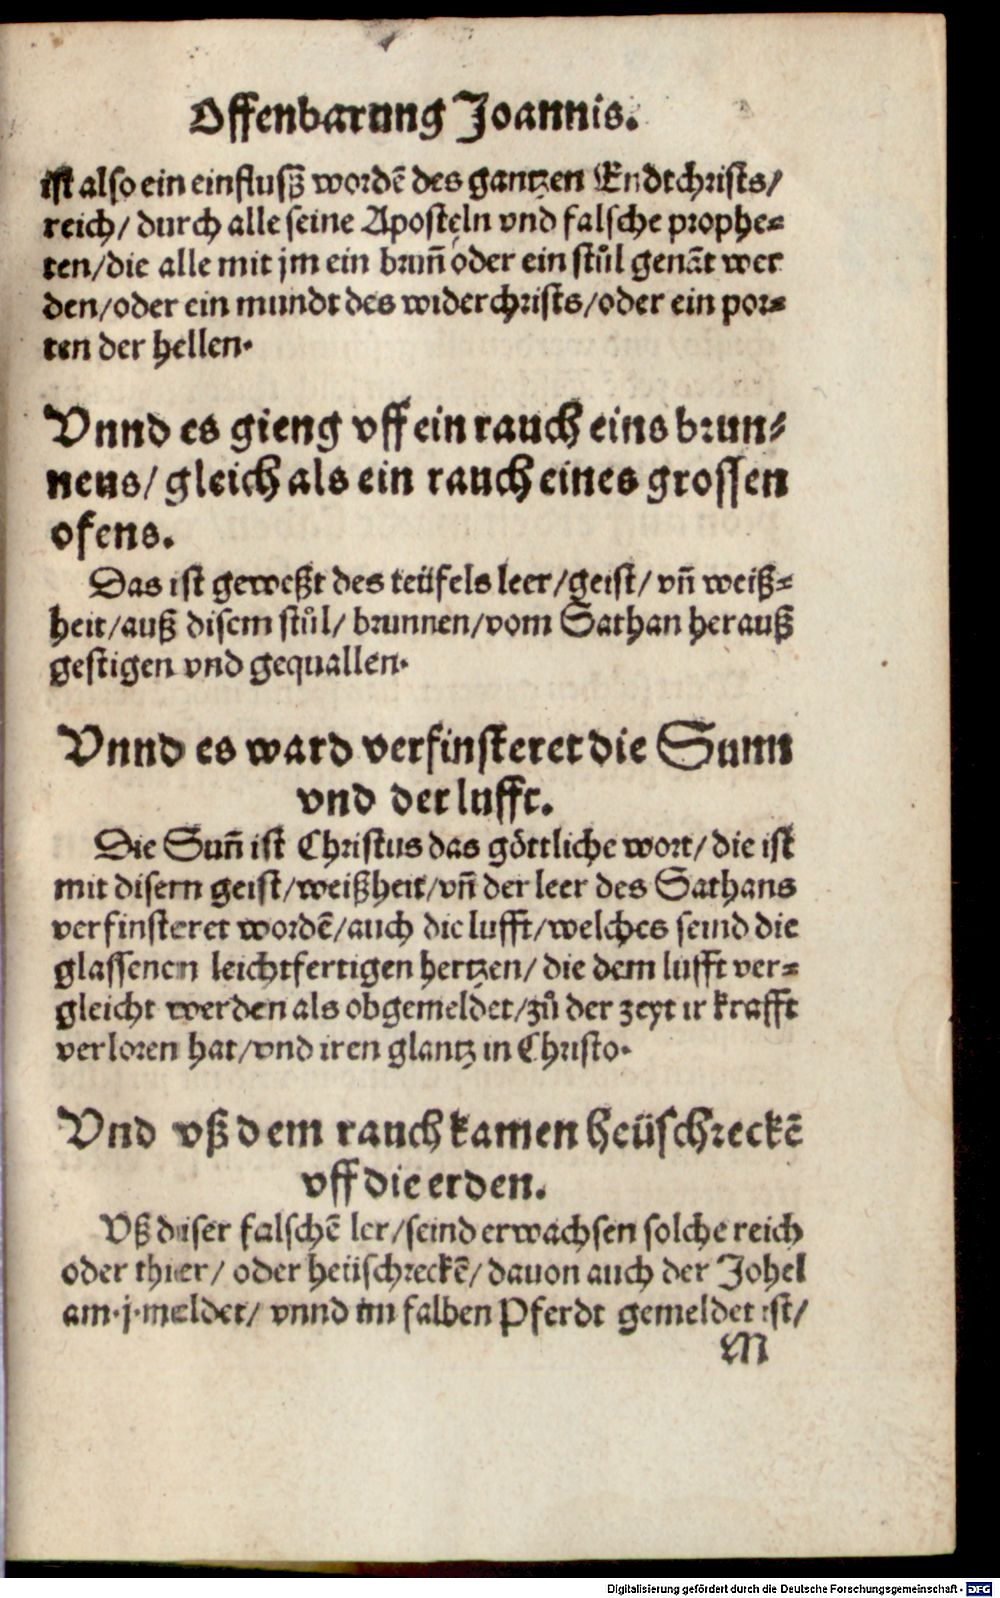 Offenbarung Joannis.
ist also ein einflusz wordē des gantzen Endtchrists/
reich/ durch alle seine Aposteln vnd falsche prophe-
ten/die alle mit jm ein brun̄ oder ein stůl genāt wer
den/oder ein mundt des widerchrists/oder ein por-
ten der hellen.
Vnnd es gieng vff ein rauch eins brun-
nens/ gleich als ein rauch eines grossen
ofens.
Das ist geweßt des teüfels leer/geist/ vn̄ weiß-
heit/auß disem stůl/ brunnen/vom Sathan herauß
gestigen vnd gequallen.
Vnnd es ward verfinsteret die Sunn
vnd der lufft.
Die Sun̄ ist Christus das göttliche wort/ die ist
mit disem geist/weißheit/vn̄ der leer des Sathans
verfinsteret wordē/auch die lufft/welches seind die
glassenen leichtfertigen hertzen/ die dem lufft ver-
gleicht werden als obgemeldet/zů der zeyt ir krafft
verloren hat/vnd iren glantz in Christo.
Vnd vß dem rauch kamen heüschreckē
vff die erden.
Vß diser falschē ler/seind erwachsen solche reich
oder thier/ oder heüschreckē/ dauon auch der Johel
am.j.meldet/ vnnd im falben Pferdt gemeldet ist/
M
Digitalisierung gefördert durch die Deutsche Forschungsgemeinschaft - DFG